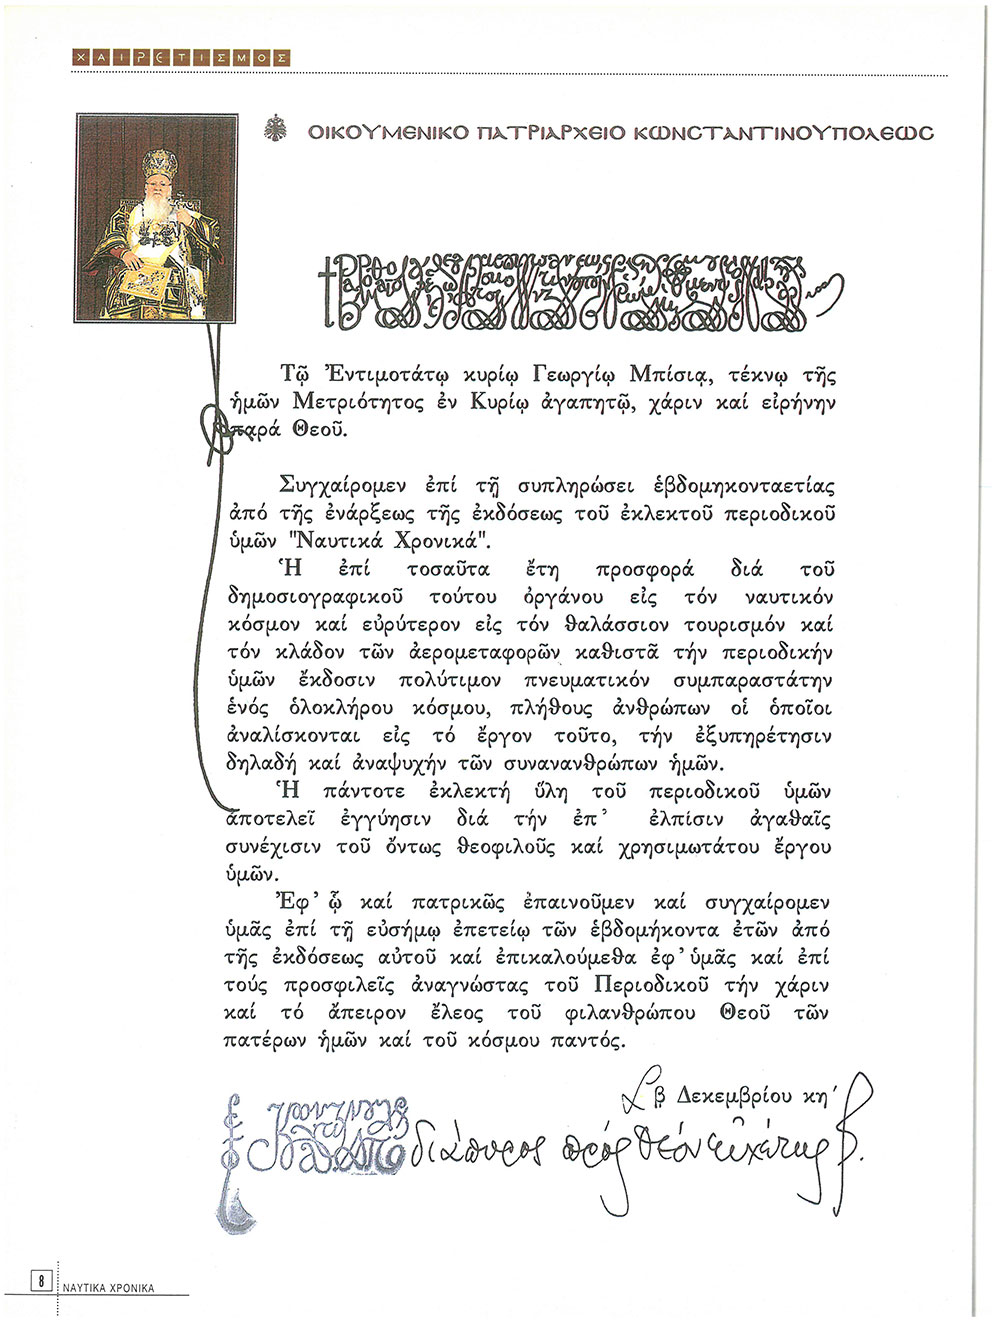 ΧΑΙΡΕΤΙΣΜΟΣ
ΟΙΚΟΥΜΕΝΙΚΟ ΠΑΤΡΙΑΡΧΕΙΟ ΚΩΝΣΤΑΝΤΙΝΟΥΠΟΛΕΩΣ
Τῷ Ἐντιμοτάτῳ κυρίῳ Γεωργίῳ Μπίσιᾳ, τέκνῳ τῆς
ἡμῶν Μετριότητος ἐν Κυρίῳ ἀγαπητῷ, χάριν καί εἰρήνην
παρά Θεοῦ.
Συγχαίρομεν ἐπί τῇ συπληρώσει ἑβδομηκονταετίας
ἀπό τῆς ἐνάρξεως τῆς ἐκδόσεως τοῦ ἐκλεκτοῦ περιοδικοῦ
ὑμῶν "Ναυτικά Χρονικά".
Ἡ ἐπί τοσαῦτα ἔτη προσφορά διά τοῦ
δημοσιογραφικοῦ τούτου ὀργάνου εἰς τόν ναυτικόν
κόσμον καί εὐρύτερον εἰς τόν θαλάσσιον τουρισμόν καί
τόν κλάδον τῶν ἀερομεταφορῶν καθιστᾶ τήν περιοδικήν
ὑμῶν ἔκδοσιν πολύτιμον πνευματικόν συμπαραστάτην
ἑνός ὁλοκλήρου κόσμου, πλήθους ἀνθρώπων οἱ ὁποῖοι
ἀναλίσκονται εἰς τό ἔργον τοῦτο, τήν ἐξυπηρέτησιν
δηλαδή καί ἀναψυχήν τῶν συνανανθρώπων ἡμῶν.
Ἡ πάντοτε ἐκλεκτή ὕλη τοῦ περιοδικοῦ ὑμῶν
ἀποτελεῖ ἐγγύησιν διά τήν ἐπ' ἐλπίσιν ἀγαθαῖς
συνέχισιν τοῦ ὄντως θεοφιλοῦς καί χρησιμωτάτου ἔργου
ὑμῶν.
Ἐφ' ᾧ καί πατρικῶς ἐπαινοῦμεν καί συγχαίρομεν
ὑμᾶς ἐπί τῇ εὐσήμῳ ἐπετείῳ τῶν ἑβδομήκοντα ἐτῶν ἀπό
τῆς ἐκδόσεως αὐτοῦ καί ἐπικαλούμεθα ἐφ' ὑμᾶς καί ἐπί
τούς προσφιλεῖς ἀναγνώστας τοῦ Περιοδικοῦ τήν χάριν
καί τό ἄπειρον ἔλεος τοῦ φιλανθρώπου Θεοῦ τῶν
πατέρων ἡμῶν καί τοῦ κόσμου παντός.
β Δεκεμβρίου κη'
διάπυρος πρός Θεόν εὐχέτης
8 ΝΑΥΤΙΚΑ ΧΡΟΝΙΚΑ